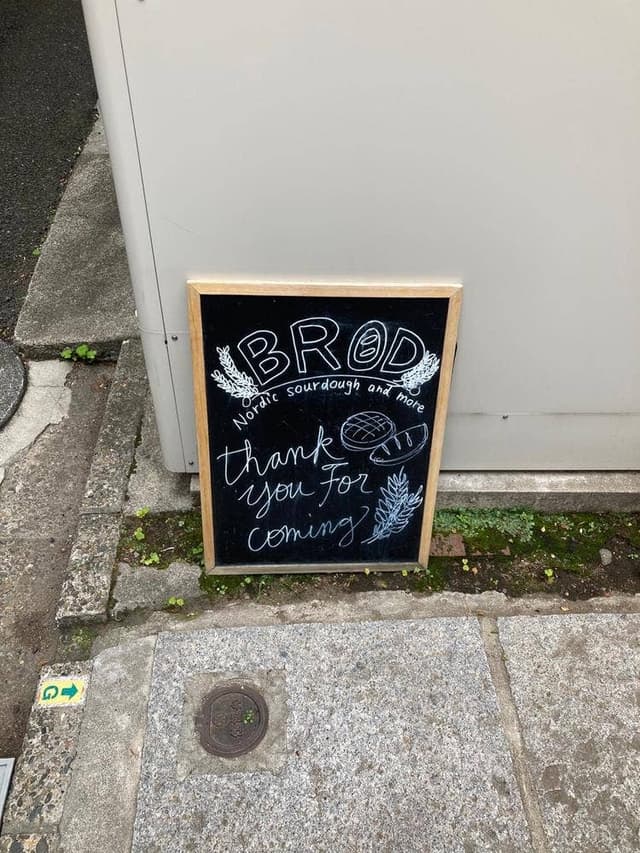 BRØD
Nordic sourdough and more
thank
you For
coming
G